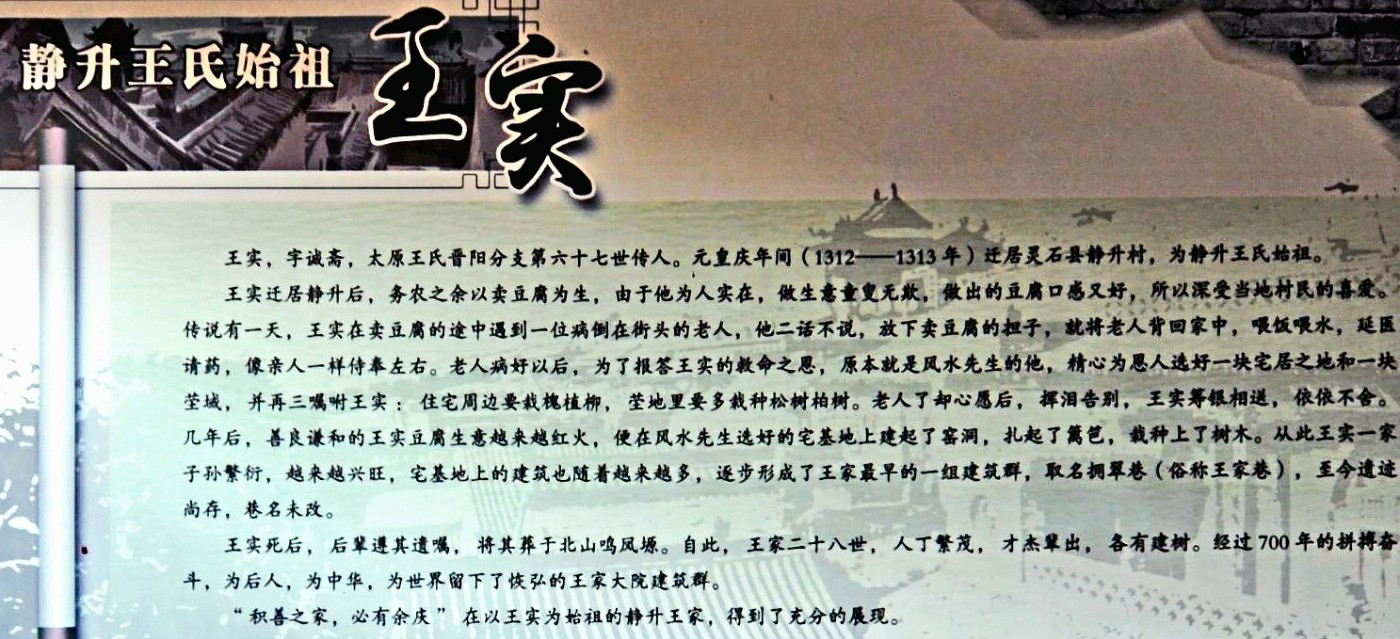 静升王氏始祖 王实
王实，字诚斋，太原王氏晋阳分支第六十七世传人。元皇庆年间（1312——1313年）迁居灵石县静升村，为静升王氏始祖。
王实迁居静升后，务农之余以卖豆腐为生，由于他为人实在，做生意童叟无欺，做出的豆腐口感又好，所以深受当地村民的喜爱。
传说有一天，王实在卖豆腐的途中遇到一位病倒在街头的老人，他二话不说，放下卖豆腐的担子，就将老人背回家中，喂饭喂水，延医
请药，像亲人一样侍奉左右。老人病好以后，为了报答王实的救命之恩，原本就是风水先生的他，精心为恩人选好一块宅居之地和一块
茔城，并再三嘱咐王实：住宅周边要栽槐植柳，茔地里要多栽种松树柏树。老人了却心愿后，挥泪告别，王实筹银相送，依依不舍。
几年后，善良谦和的王实豆腐生意越来越红火，便在风水先生选好的宅基地上建起了窑洞，扎起了篱笆，栽种上了树木。从此王实一家
子孙繁衍，越来越兴旺，宅基地上的建筑也随着越来越多，逐步形成了王家最早的一组建筑群，取名拥翠巷（俗称王家巷），至今遗迹
尚存，巷名未改。
王实死后，后辈遵其遗嘱，将其葬于北山鸣凤塬。自此，王家二十八世，人丁繁茂，才杰辈出，各有建树。经过700年的拼搏奋
斗，为后人，为中华，为世界留下了恢弘的王家大院建筑群。
“积善之家，必有余庆”在以王实为始祖的静升王家，得到了充分的展现。